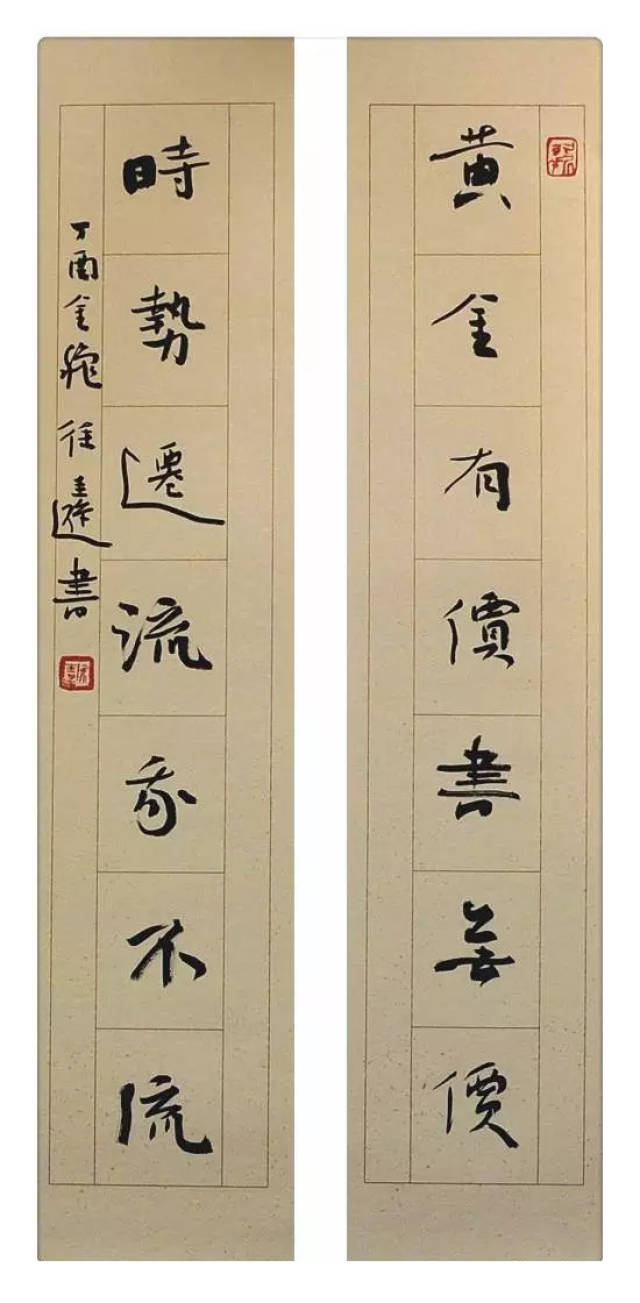 黄金有價書無價
時勢遷流我不流
丁酉金穐書